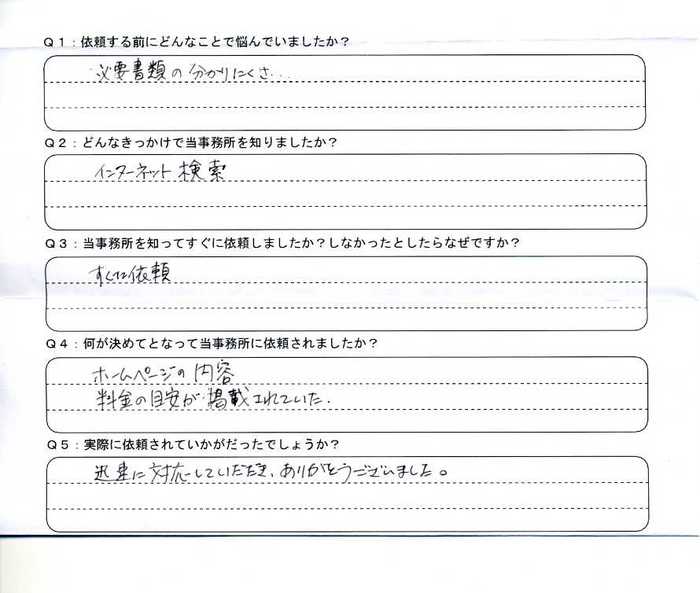 Q1：依頼する前にどんなことで悩んでいましたか？
必要書類の分かりにくさ...
Q2：どんなきっかけで当事務所を知りましたか？
インターネット検索
Q3：当事務所を知ってすぐに依頼しましたか？しなかったとしたらなぜですか？
すぐに依頼
Q4：何が決めてとなって当事務所に依頼されましたか？
ホームページの内容
料金の目安が掲載されていた.
Q5：実際に依頼されていかがだったでしょうか？
迅速に対応していただき、ありがとうございました。